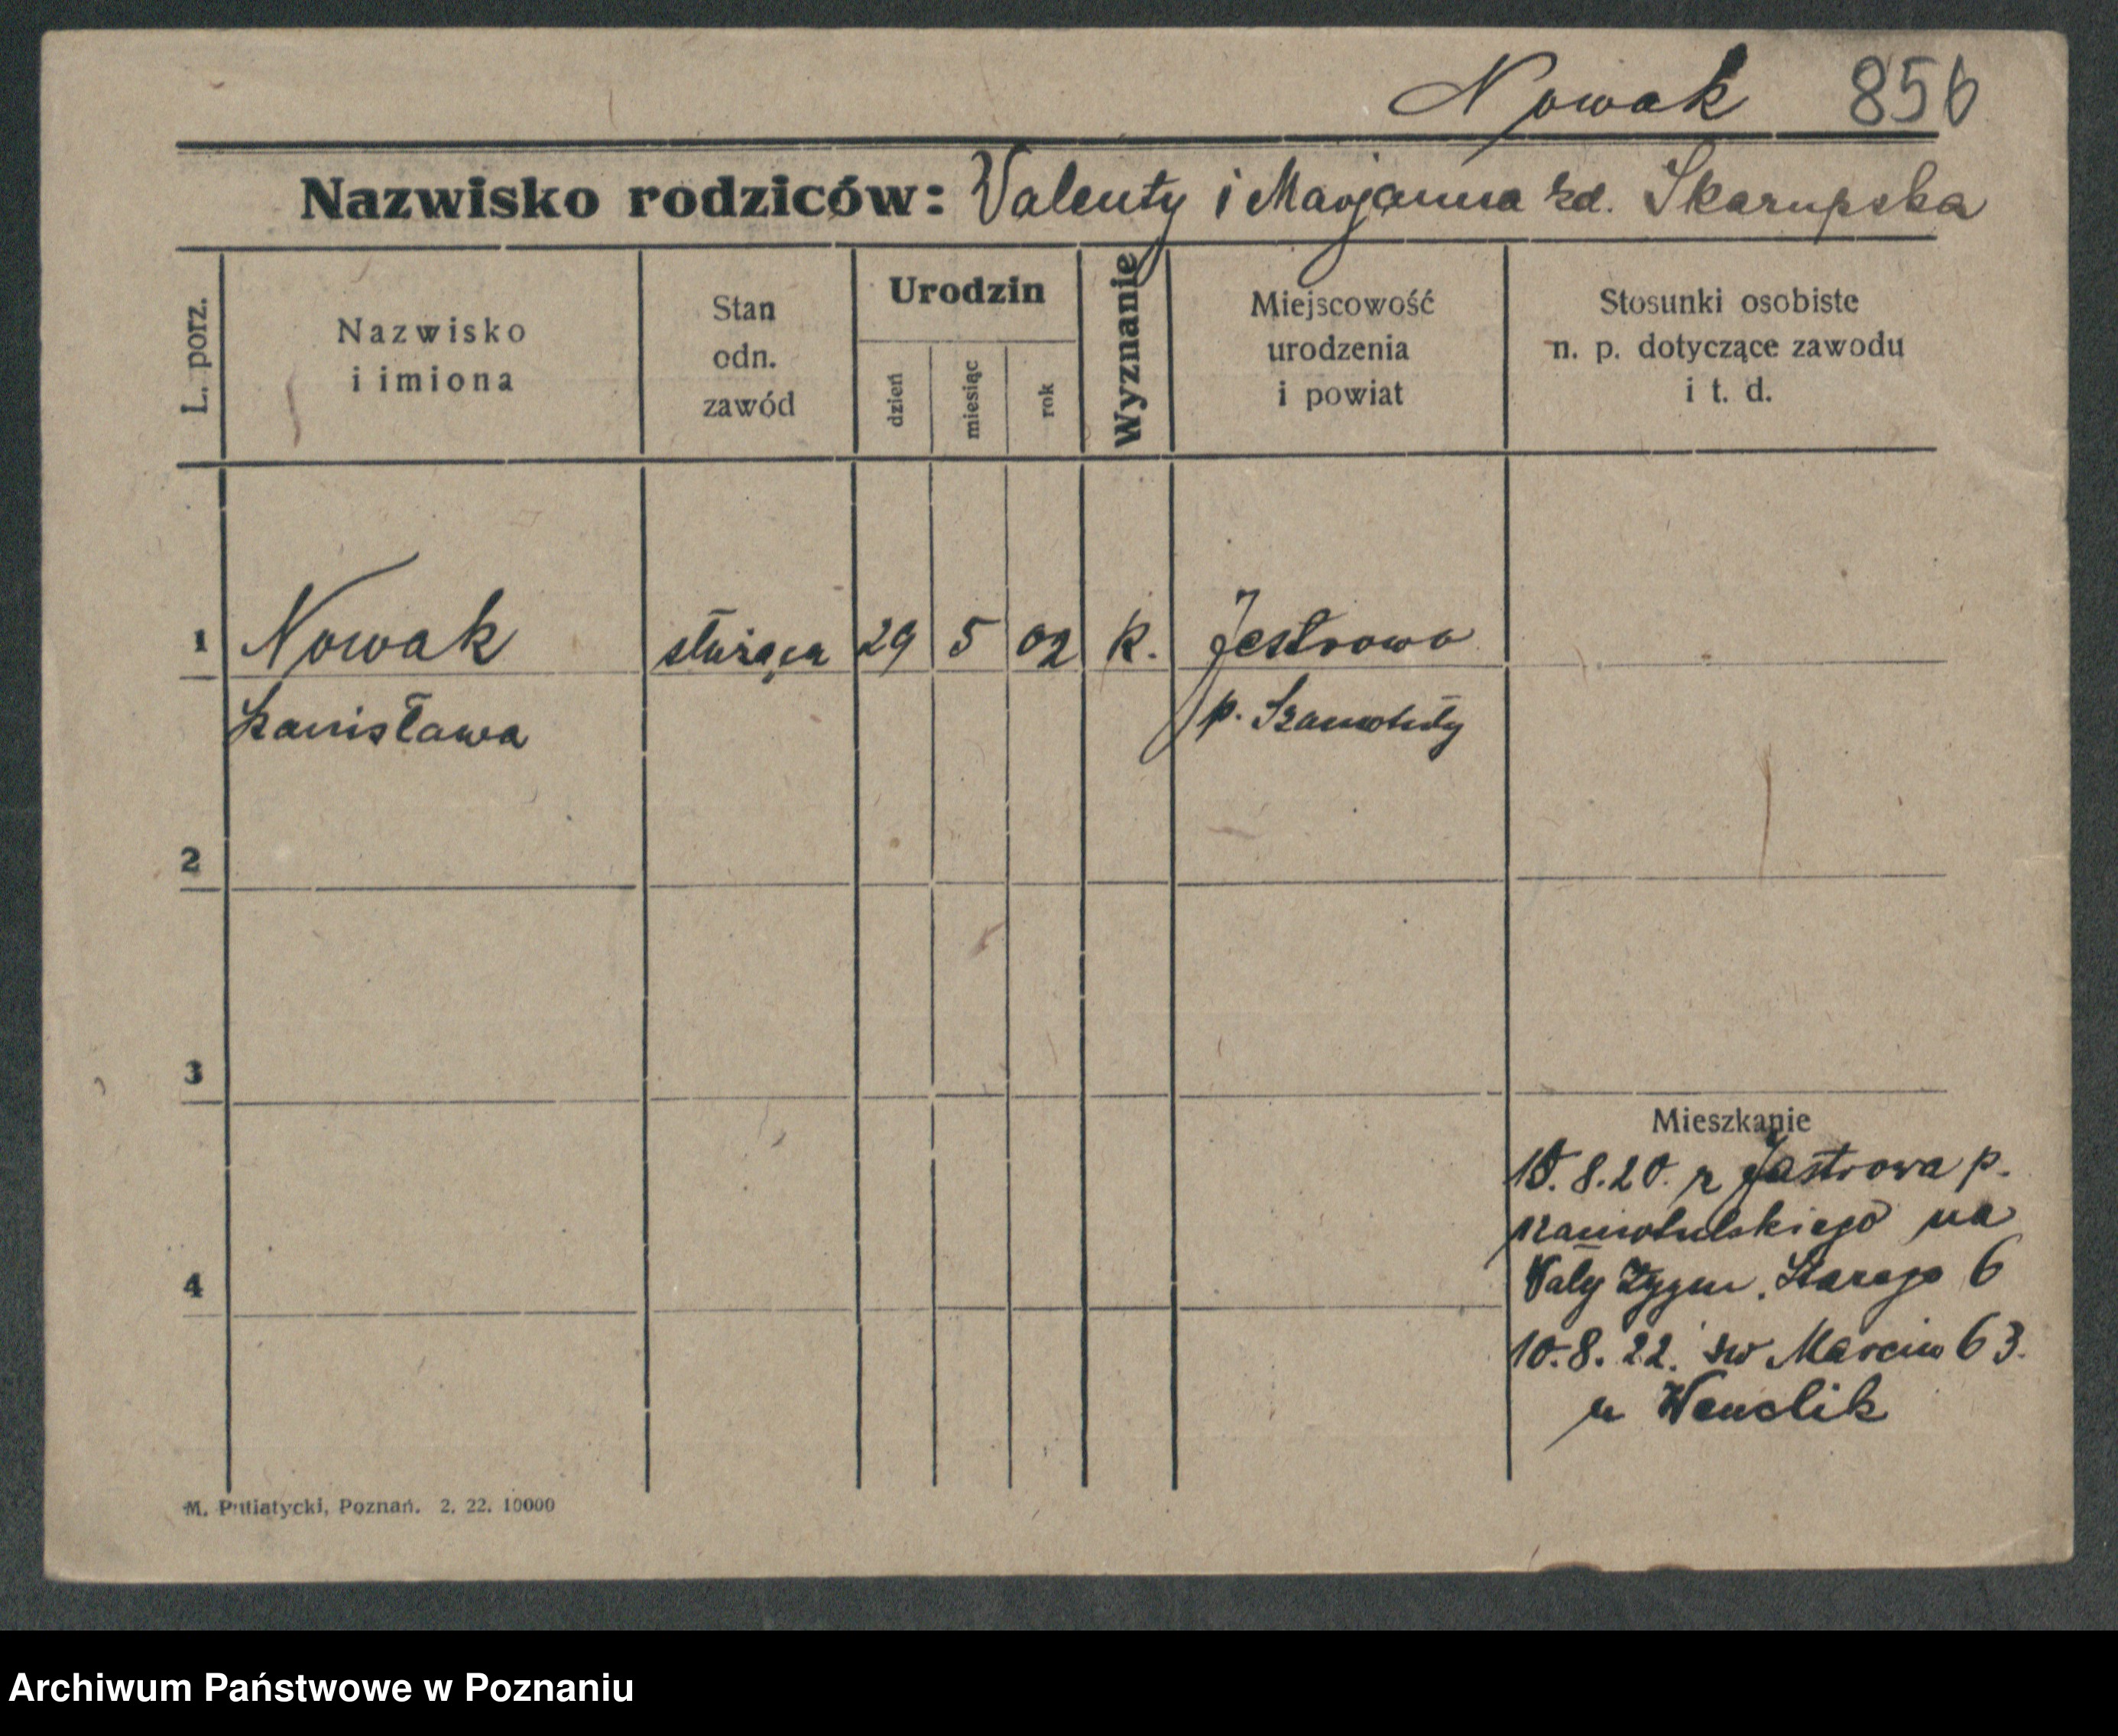 Nowak 856
Nazwisko rodziców: Valenty i Marjanna zd. Skarupska
L. porz.
Nazwisko
i imiona
Stan
odn.
zawód
Urodzin
dzień
miesiąc
rok
Wyznanie
Miejscowość
urodzenia
i powiat
Stosunki osobiste
n. p. dotyczące zawodu
i t. d.
1 Nowak służąca 29 5 02 k. Jestrowo
Stanisława p. Szamotuły
2
3
Mieszkanie
10. 8. 20. z Jastrowa p.
szamotulskiego na
4
Wały Zygm. Starego 6
10. 8. 22. św Marcin 63.
u Wenclik
M. Putiatycki, Poznań. 2. 22. 10000
Archiwum Państwowe w Poznaniu